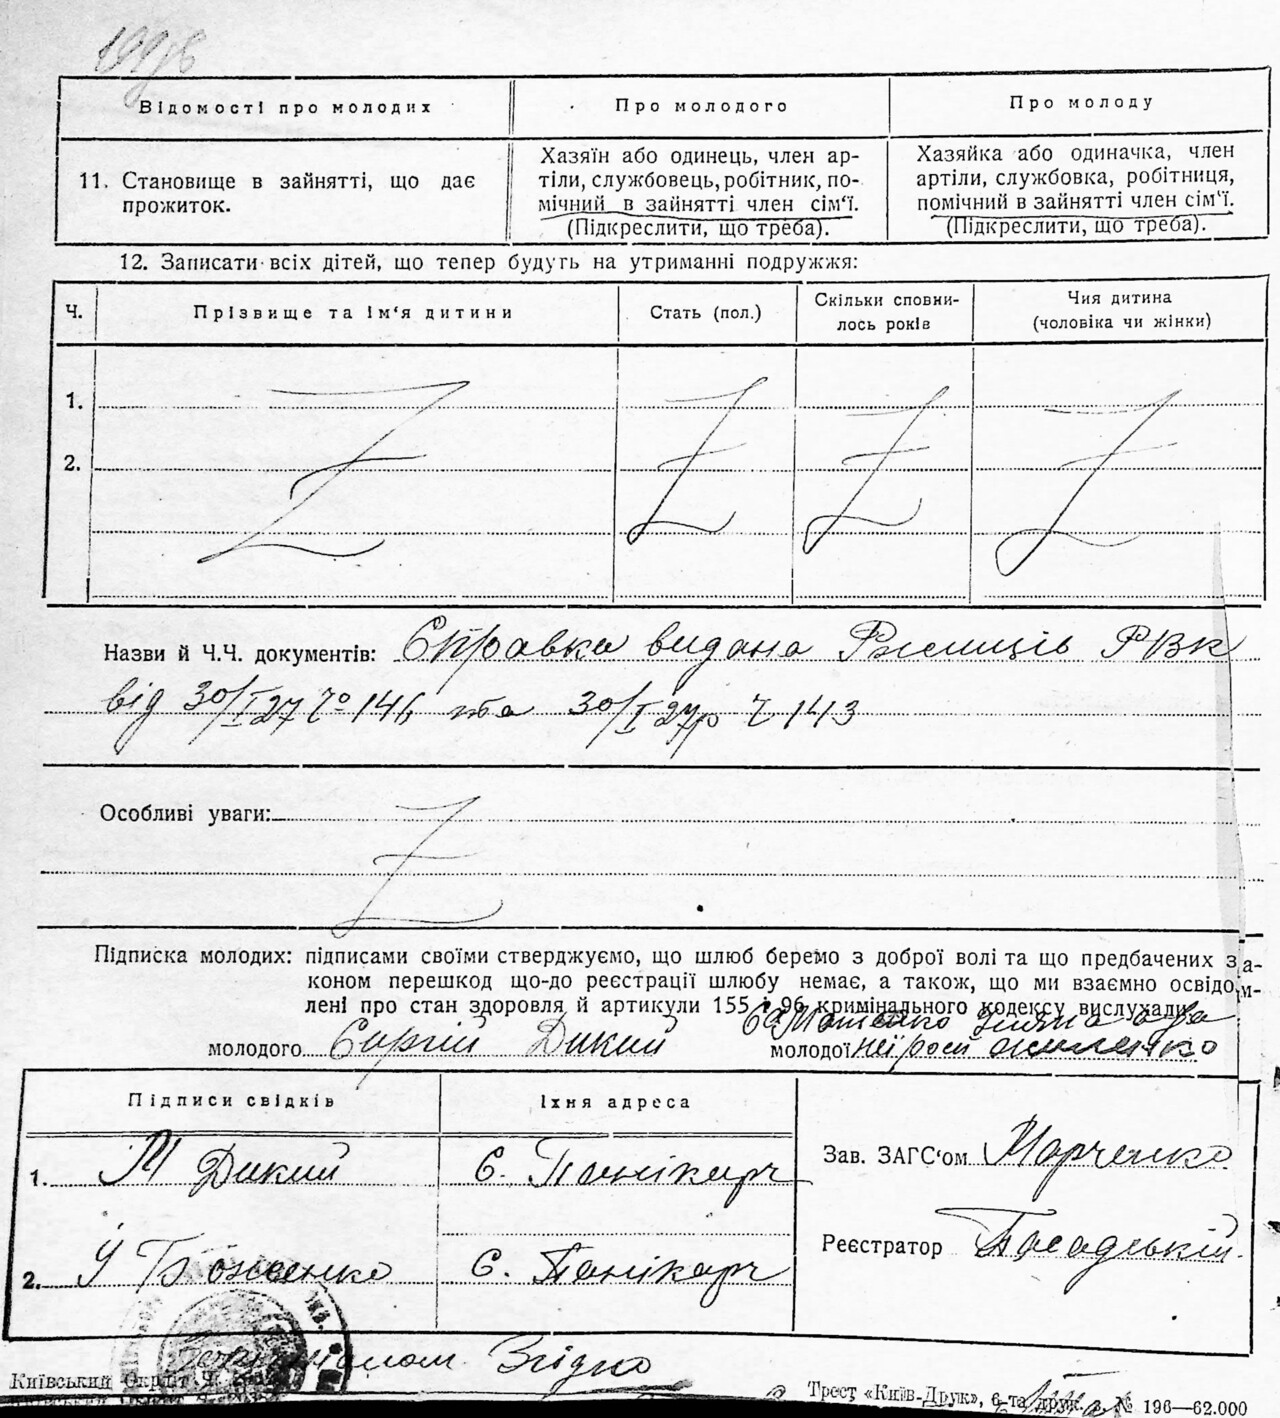 Відомості про молодих
Про молодого
Про молоду
11. Становище в зайнятті, що дає
прожиток.
Хазяїн або одинець, член ар-
тіли, службовець, робітник, по-
мічний в зайнятті член сім'ї.
(Підкреслити, що треба).
Хазяйка або одиначка, член
артіли, службовка, робітниця,
помічний в зайнятті член сім'ї.
(Підкреслити, що треба).
12. Записати всіх дітей, що тепер будуть на утриманні подружжя:
Ч.
Прізвище та ім'я дитини
Стать (пол.)
Скільки сповни-
лось років
Чия дитина
(чоловіка чи жінки)
1.
2.
Назви й Ч.Ч. документів: Справка видана РВК
від 30/I 27 Чо 146 та 30/I 27 р Ч 143
Особливі уваги:
Підписка молодих: підписами своїми стверджуємо, що шлюб беремо з доброї волі та що предбачених за-
коном перешкод що-до реєстрації шлюбу немає, а також, що ми взаємно освідом-
лені про стан здоровля й артикули 155 і 96 кримінального кодексу вислухали
молодого Сергій Дикий
молодої
Підписи свідків
Їхня адреса
1. М Дикий
С. Панікарч
2. Й Боженко
С. Панікарч
Зав. ЗАГС'ом Марченко
Реєстратор Посадський
Згідно
Київський Окрліт Ч.
Трест «Київ-Друк», 6-та друк. з. № 196—62.000